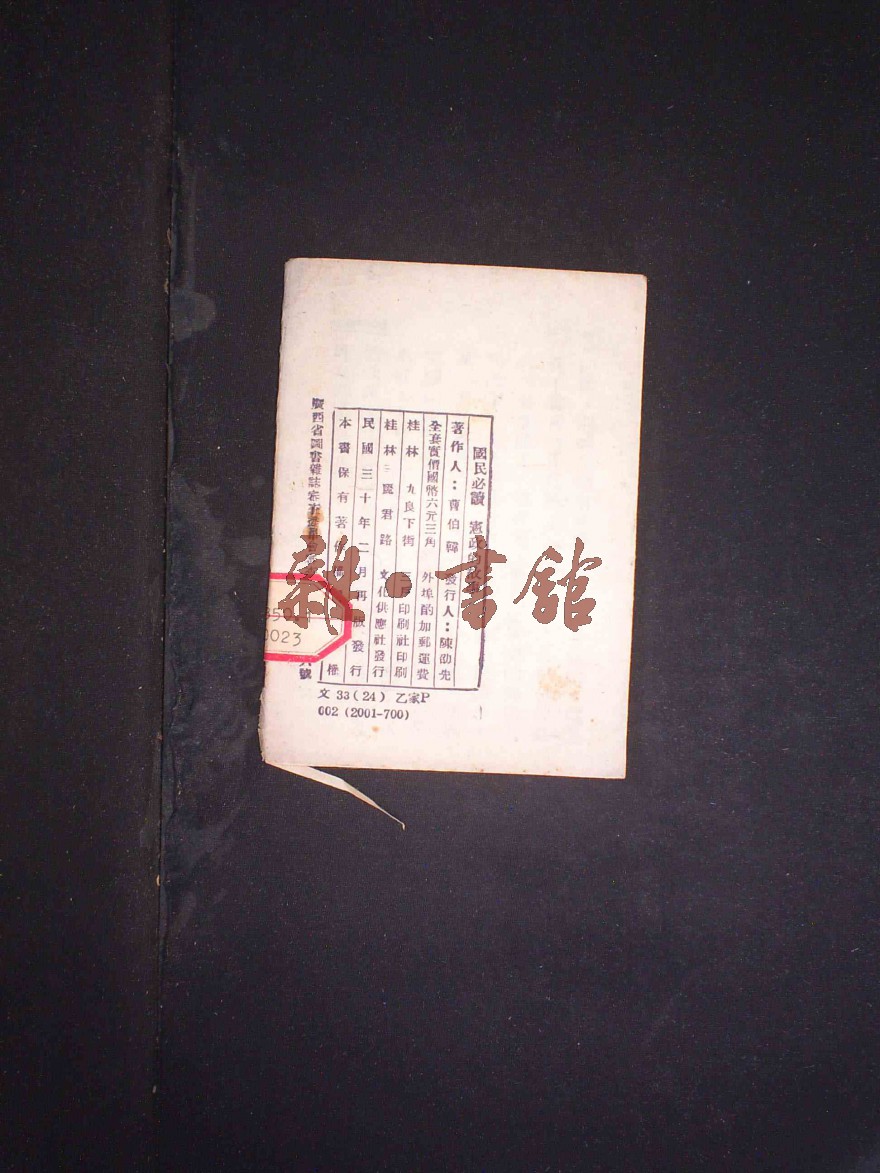 國民必讀 憲政
著作人：曹伯韓 發行人：陳劭先
全套實價國幣六元三角 外埠酌加郵運費
桂林 九良下街 印刷社印刷
桂林 麗君路 文化供應社發行
民國三十年二月再版發行
本書保有著 權
廣西省圖書雜誌審 號
文 33(24) 乙家P
002 (2001-700)
0023
雜·書館